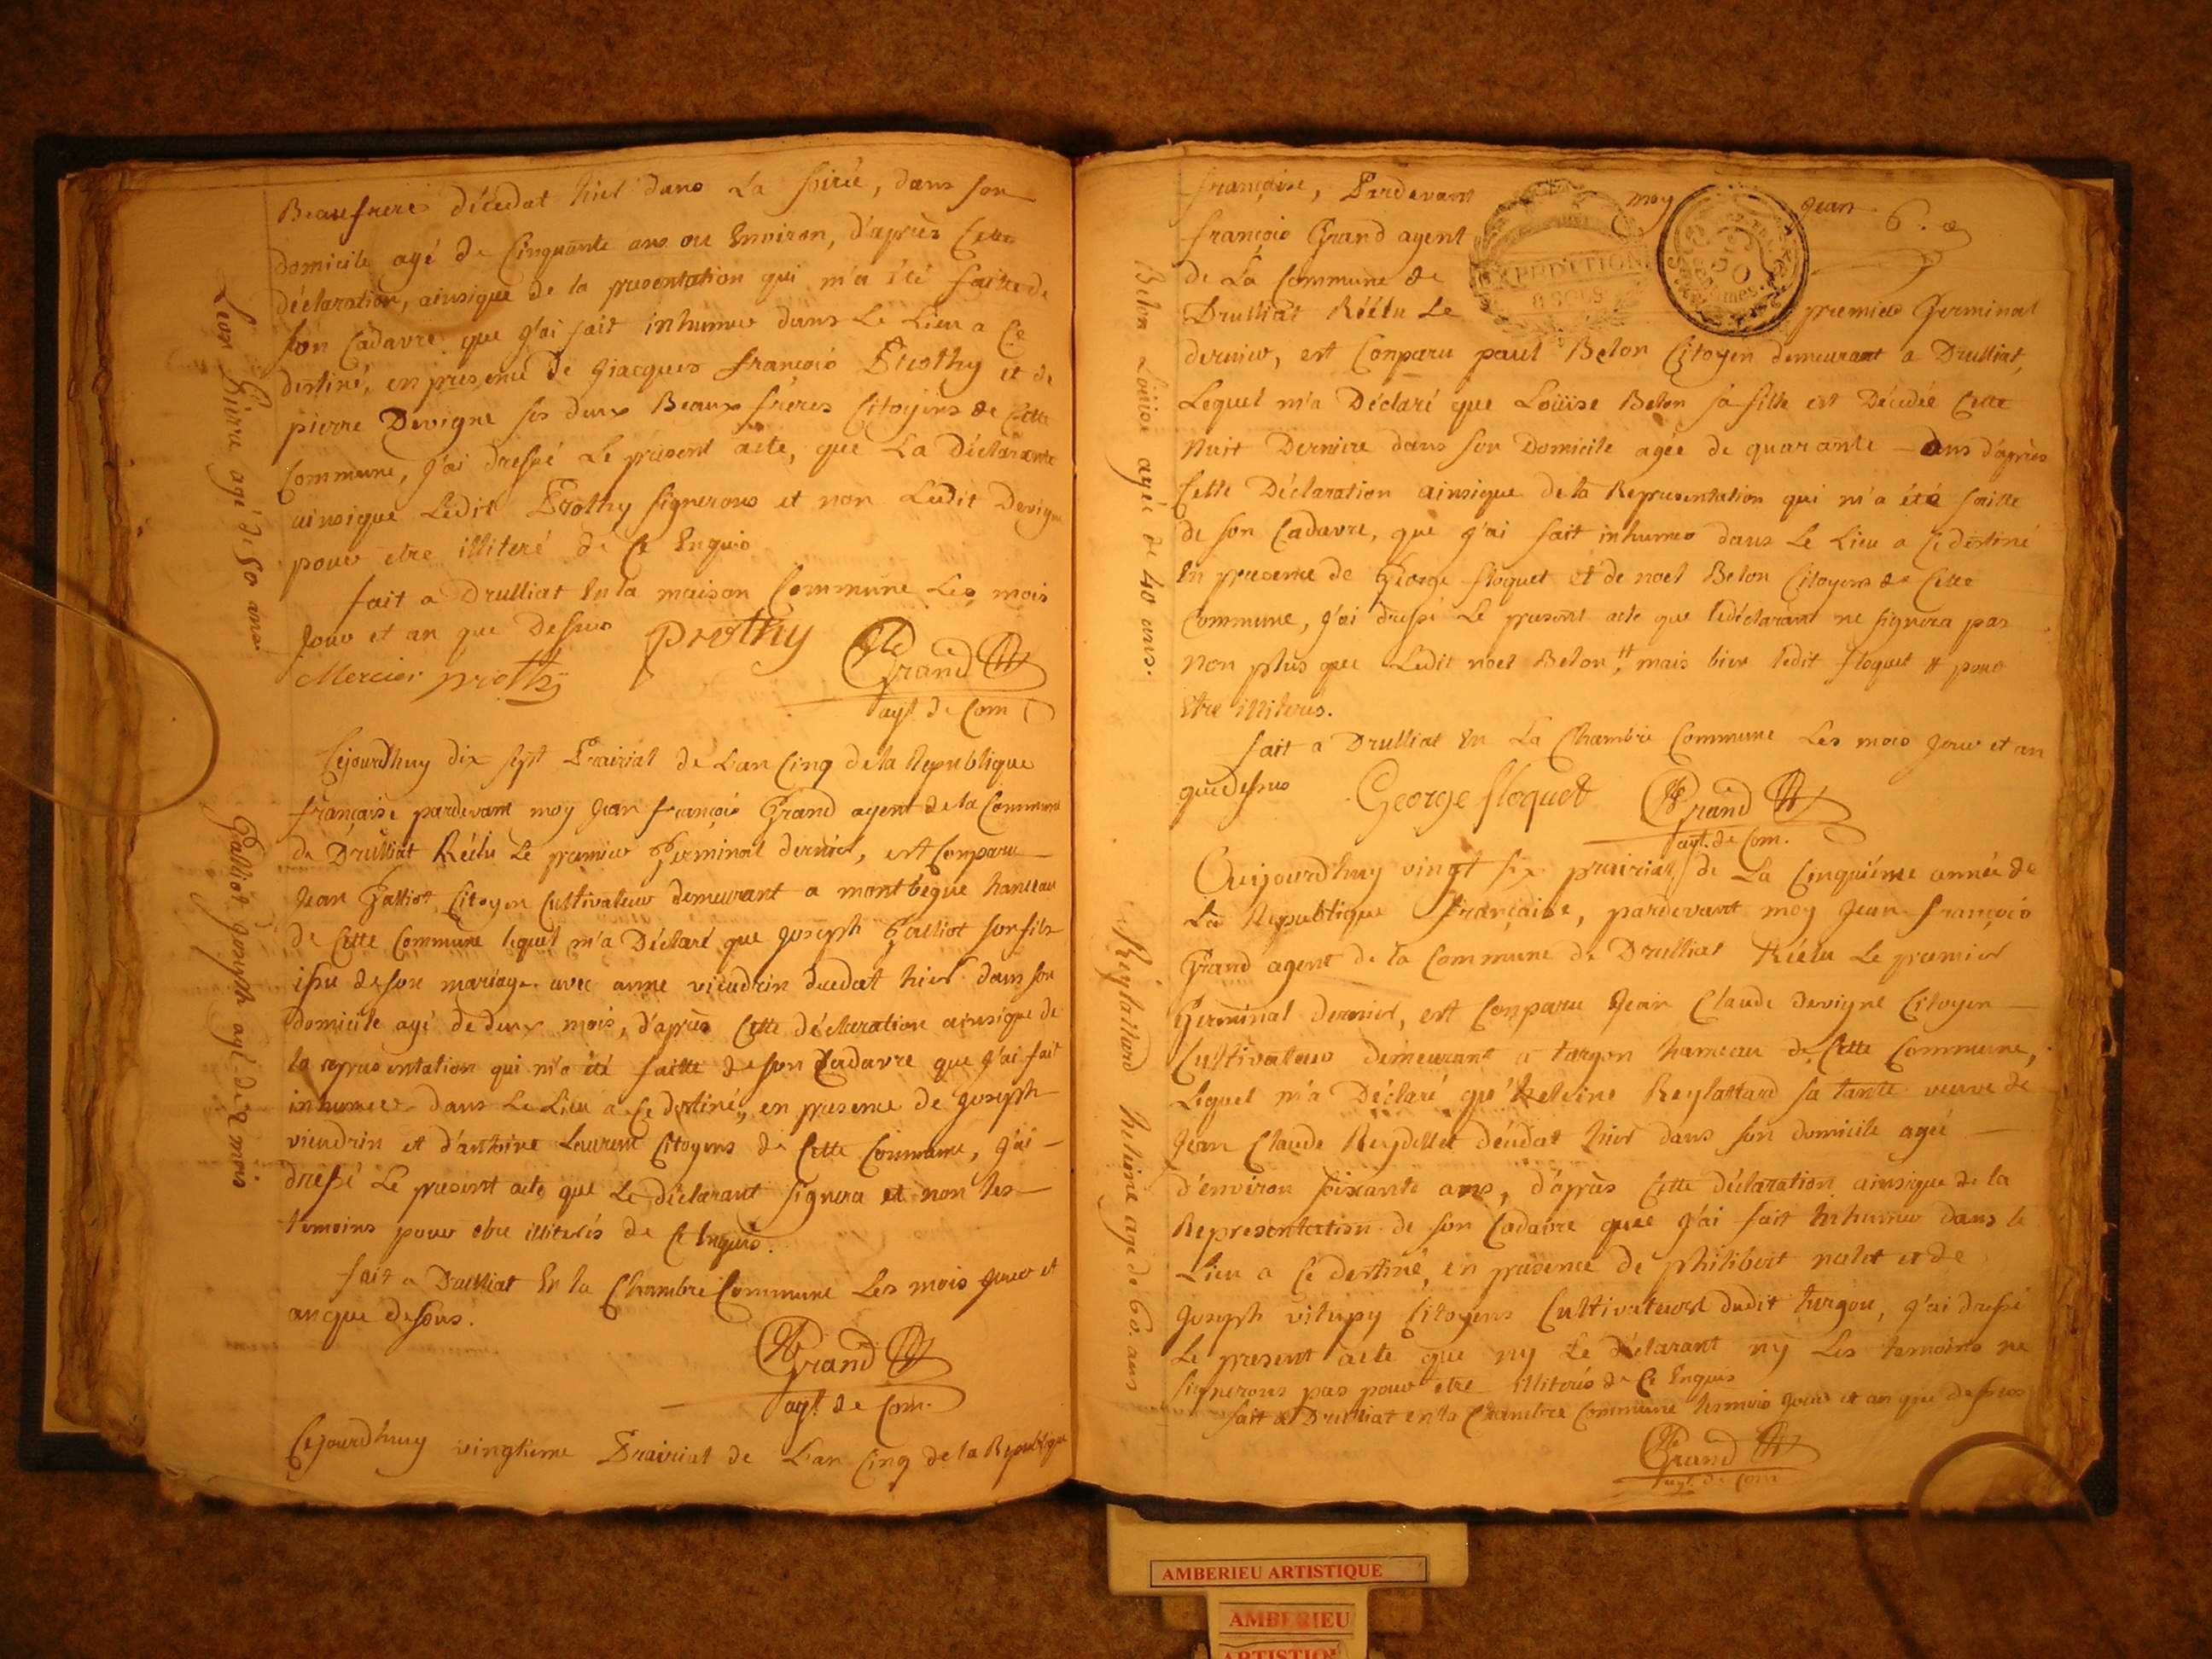 Beaufrere décedat hier dans La soirée, dans son
domicile agé de Cinquante ans ou Environ, d'après Cette
déclaration, ainsique de la presentation qui m'a été faitte de
son Cadavre que j'ai fait inhumer dans Le Lieu a Ce
destiné, en presence de Jiacques françois Prothy et de
pierre Devigne ses deux Beaux freres Citoyens de Cette
Commune, j'ai dressé Le present acte, que La Déclarante
ainsique Ledit Prothy signerons et non Ledit Devigne
pour etre illiteré de Ce Enquis
fait a Drulliat En la maison Commune Les mois
Jour et an que Dessus
prothy
Mercier prothy
Grand
agt. de Com
Leon Pierre agé de 50 ans
Cejourdhuy dix sept Prairial de L'an Cinq de la Republique
française pardevant moy Jean françois Grand agent de la Commune
de Drulliat Réélu Le premier Germinal dernier, est Comparu
Jean Galliot Citoyen Cultivateur demeurant a montbegue hameau
de Cette Commune lequel m'a Déclaré que Joseph Galliot son fils
issu de son mariage avec anne vieudrin decedat hier dans son
domicile agé de deux mois, d'après Cette déclaration ainsique de
la representation qui m'a été faitte de son Cadavre que j'ai fait
inhumer dans Le Lieu a Ce destiné, en presence de Joseph
vieudrin et d'antoine Laurent Citoyens de Cette Commune, j'ai
dressé Le present acte que Le déclarant signera et non les
temoins pour etre illiterés de Ce Enquis.
fait a Drulliat En la Chambre Commune Les mois jour et
an que dessus.
Grand
agt. de Com.
Galliot Joseph agé de 2 mois
Cejourdhuy vingtieme Prairial de L'an Cinq de la Republique
française, Pardevant moy Jean
6.e
françois Grand agent
de La Commune de
EXPEDITION
8 SOLS
50
Drulliat Réélu Le premier Germinal
dernier, est Conparu paul Belon Citoyen demeurant a Drulliat,
Lequel m'a Déclaré que Loüise Belon sa fille est Décedée Cette
Nuit Derniere dans son Domicile agée de quarante ans d'après
Cette Déclaration ainsique de la Representation qui m'a été faitte
de son Cadavre, que j'ai fait inhumer dans Le Lieu a Ce destiné
En presence de George floquet et de noel Belon Citoyens de Cette
Commune, j'ai dressé Le present acte que ledéclarant ne signera pas
non plus que Ledit noel Belon # mais bien ledit floquet # pour
Etre illiterés.
fait a Drulliat En La Chambre Commune Les mois jour et an
que dessus
George floquet
Grand
agt. de Com.
Belon Loüise agée de 40 ans.
Aujourdhuy vingt six prairial de La Cinquiéme année de
La Republique française, pardevant moy Jean françois
Grand agent de la Commune de Drulliat Réélu Le premier
Germinal dernier, est Comparu Jean Claude Devigne Citoyen
Cultivateur demeurant a turgon hameau de Cette Commune,
Lequel m'a Déclaré que heleine Reylattard sa tante veuve de
Jean Claude Reydellet décedat hier dans son domicile agée
d'environ soixante ans, d'après Cette déclaration ainsique de la
Representation de son Cadavre que j'ai fait inhumer dans le
Lieu a Ce destiné, en presence de philibert nalet et de
Joseph vitupy Citoyens Cultivateurs dudit turgon, j'ai dressé
Le present acte que ny Le déclarant ny Les temoins ne
signerons pas pour etre illiterés de Ce Enquis
fait a Drulliat en la Chambre Commune les mois jour et an que dessus
Grand
agt. de Com
Reylattard heleine agé de 60. ans
AMBERIEU ARTISTIQUE
AMBERIEU
ARTISTIQUE